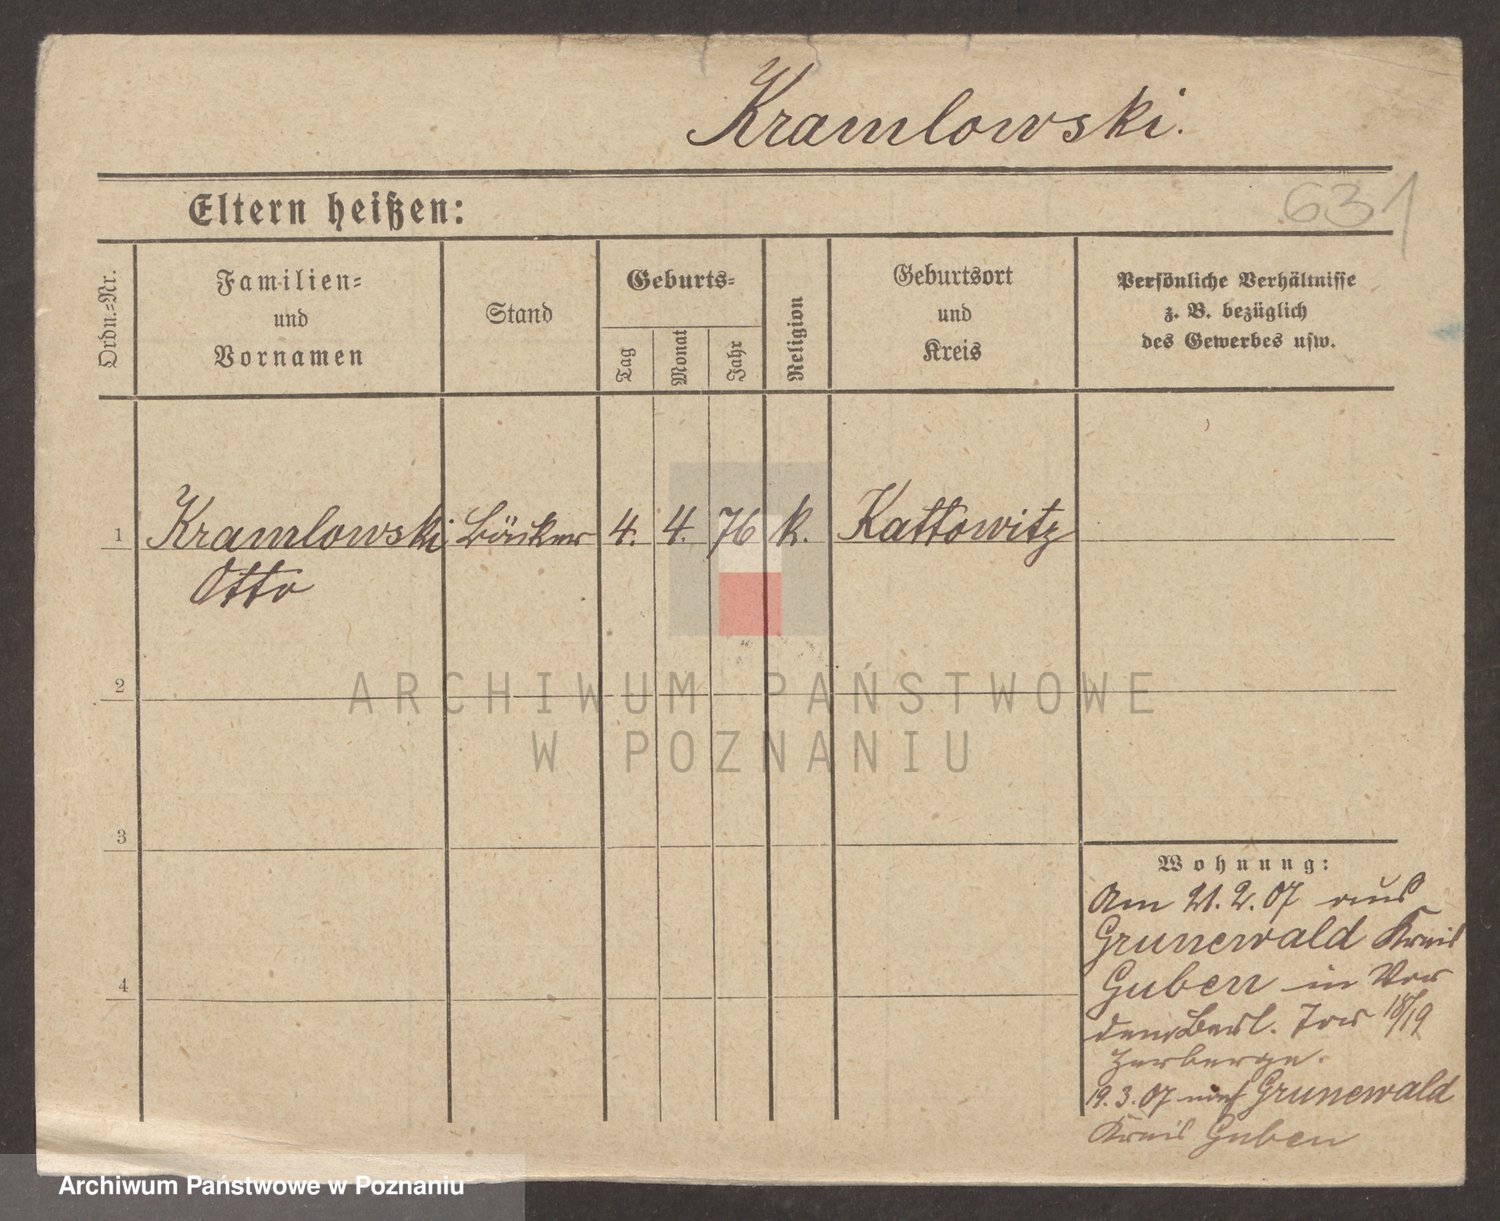 Kramlowski.
631
Eltern heißen:
Ordn.=Nr.
Familien=
und
Vornamen
Stand
Geburts=
Tag
Monat
Jahr
Religion
Geburtsort
und
Kreis
Persönliche Verhältnisse
z. B. bezüglich
des Gewerbes usw.
1 Kramlowski Bäcker 4. 4. 76 k. Kattowitz
Otto
2
ARCHIWUM PAŃSTWOWE
W POZNANIU
3
Wohnung:
Am 21.2.07 aus
Grunewald Kreis
Guben in Vor
dem Berl. Tor 18/19
Herberge.
4
19.3.07 nach Grunewald
Kreis Guben
Archiwum Państwowe w Poznaniu